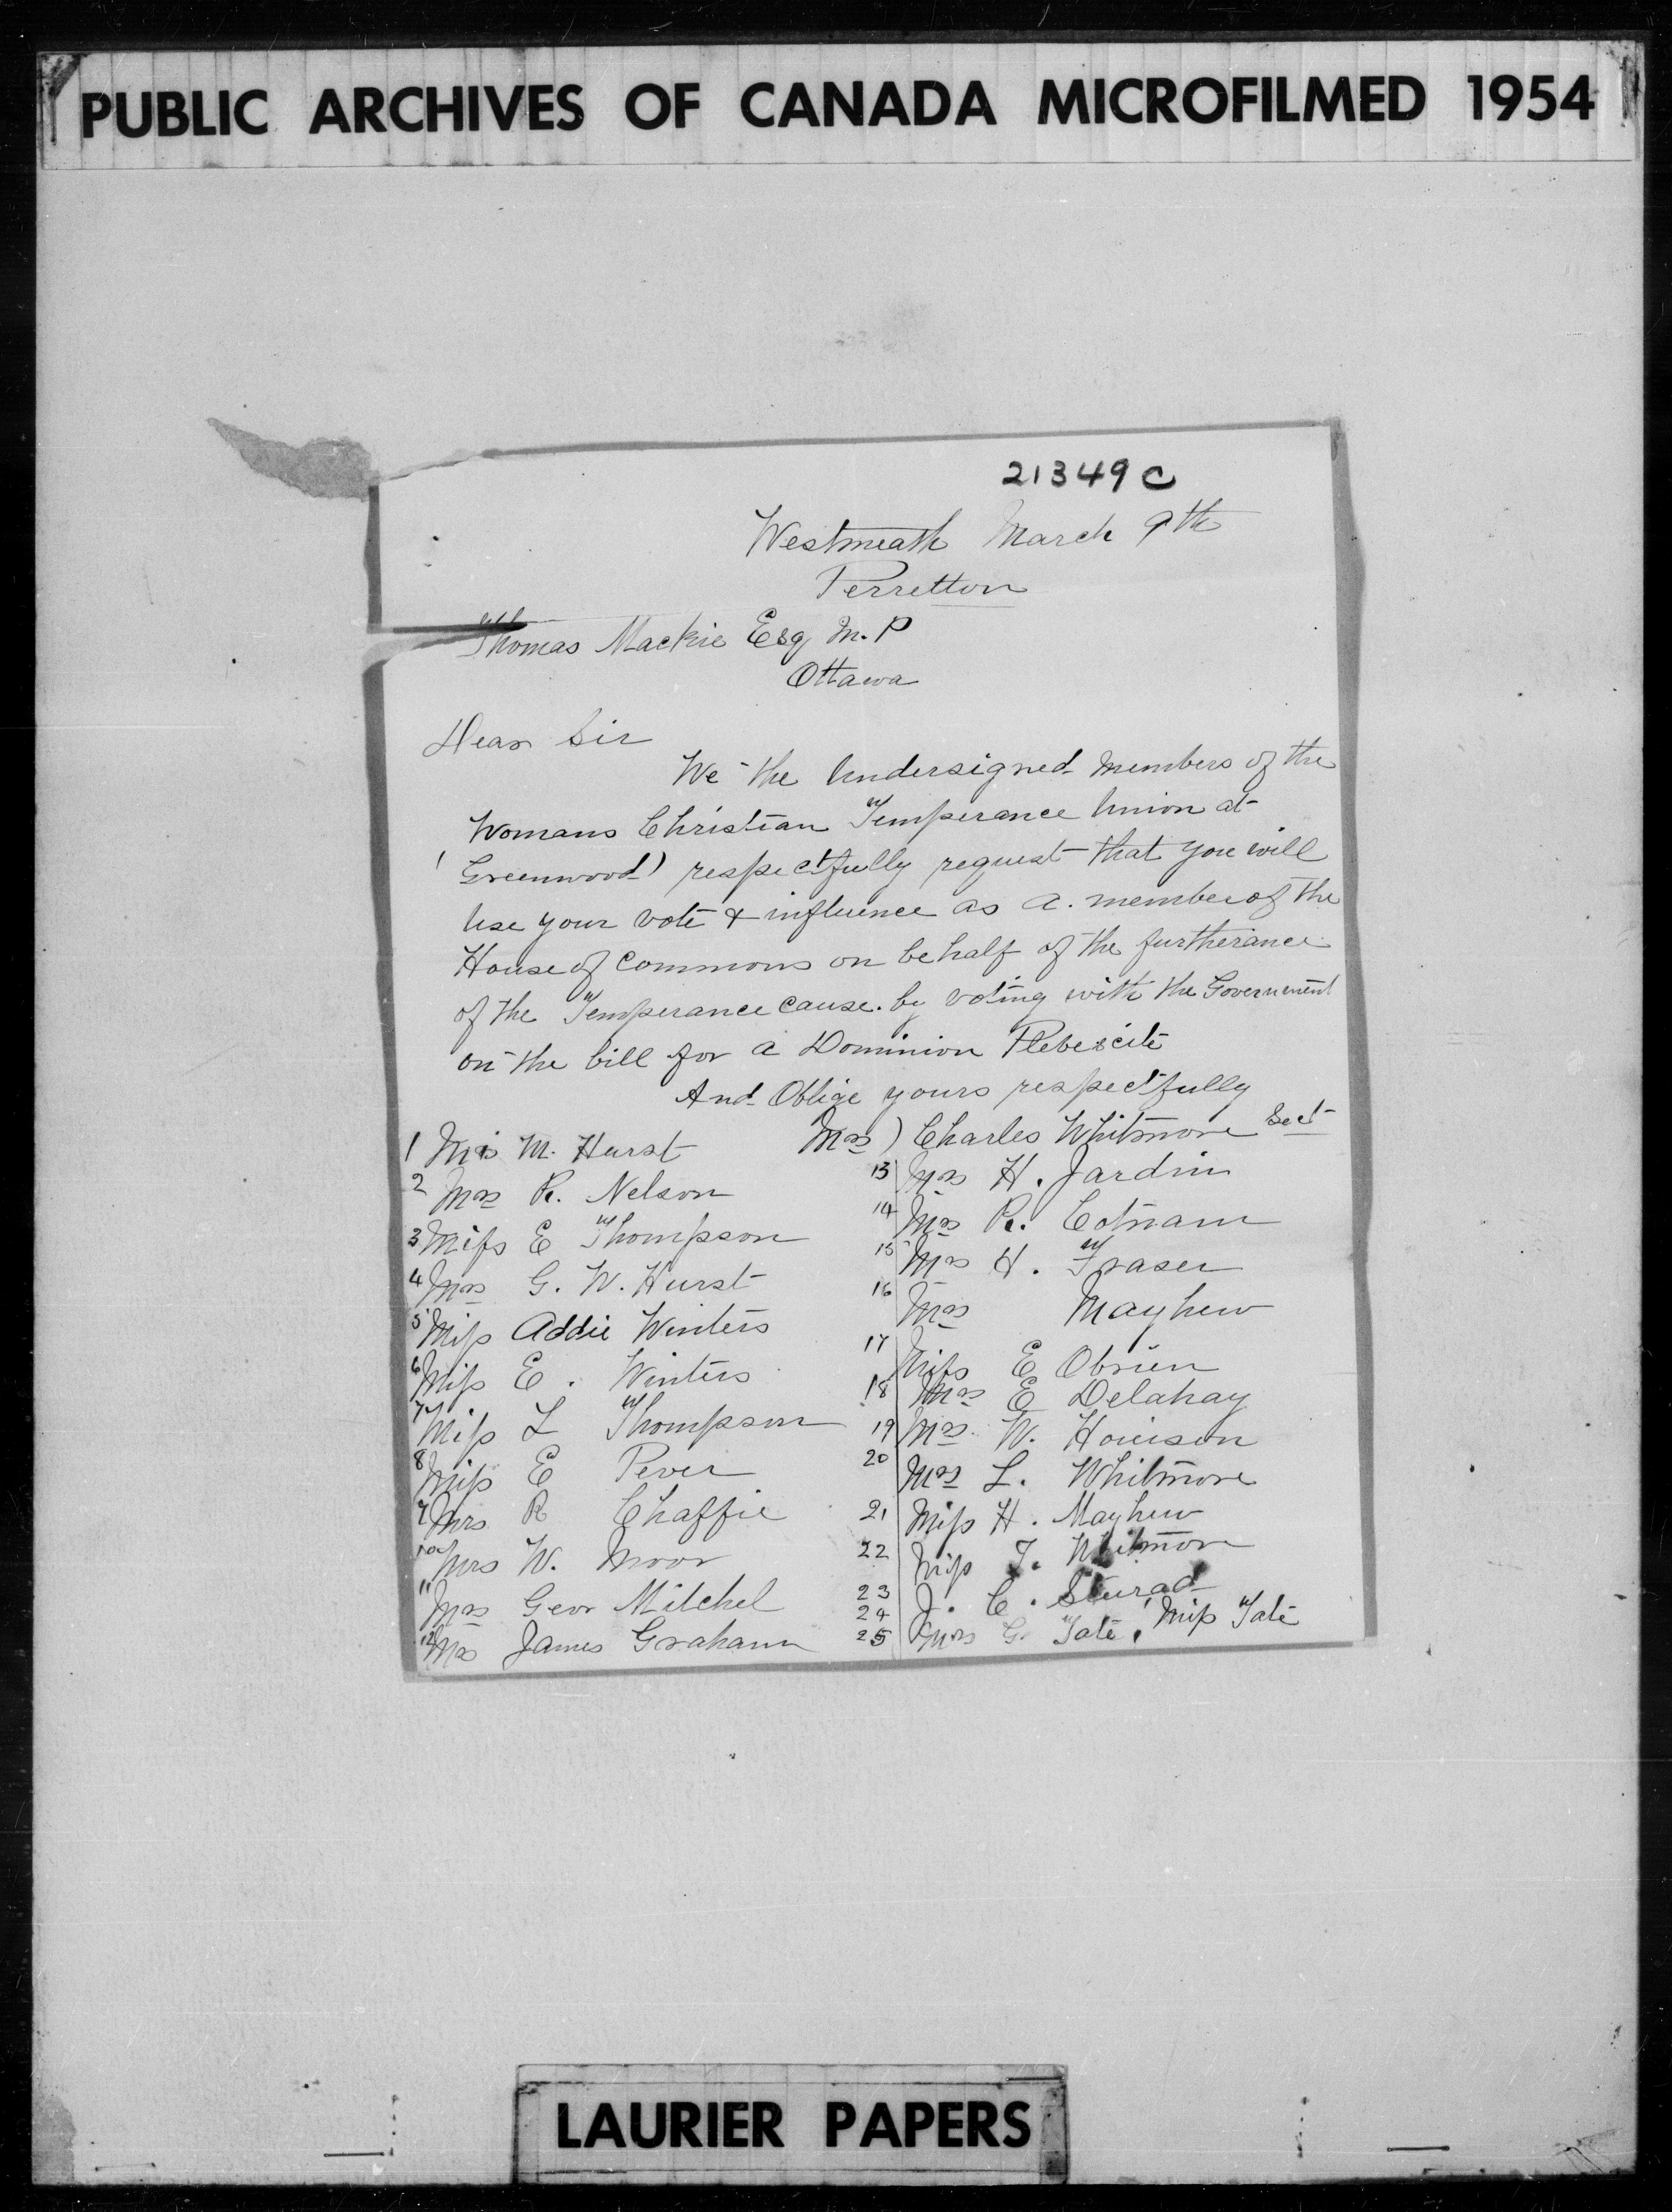 PUBLIC ARCHIVES OF CANADA MICROFILMED 1954
21349 C
Westmeath March 9th
Perretton
Thomas Mackie Esq M.P
Ottawa
Dear Sir
We the Undersigned members of the
Womans Christian Temperance Union at
(Greenwood) respectfully request that you will
Use your vote & influence as a. member of the
House of Commons on behalf of the furtherance
of the Temperance cause. by voting with the Government
on the bill for a Dominion Plebescite
And Oblige yours respectfully
Mrs) Charles Whitmore Sect
1 Mrs M. Hurst
2 Mrs R. Nelson
3 Miss E Thompson
4 Mrs G. W. Hurst
5 Miss Addie Winters
6 Miss E. Winters
7 Miss L Thompson
8 Miss E Pever
9 Mrs R Chaffie
10 Mrs W. Moor
11 Mrs Geor Mitchel
12 Mrs James Graham
13 Mrs H. Jardin
14 Mrs R. Cotnam
15 Mrs H. Fraser
16 Mrs Mayhew
17 Miss E Obrien
18 Mrs E Delahay
19 Mrs. W. Howison
20 Mrs L. Whitmore
21 Miss H. Mayhew
22 Miss T. Whitmore
23 J. C.
24 25 Mrs G. Tate, Miss Tate
LAURIER PAPERS